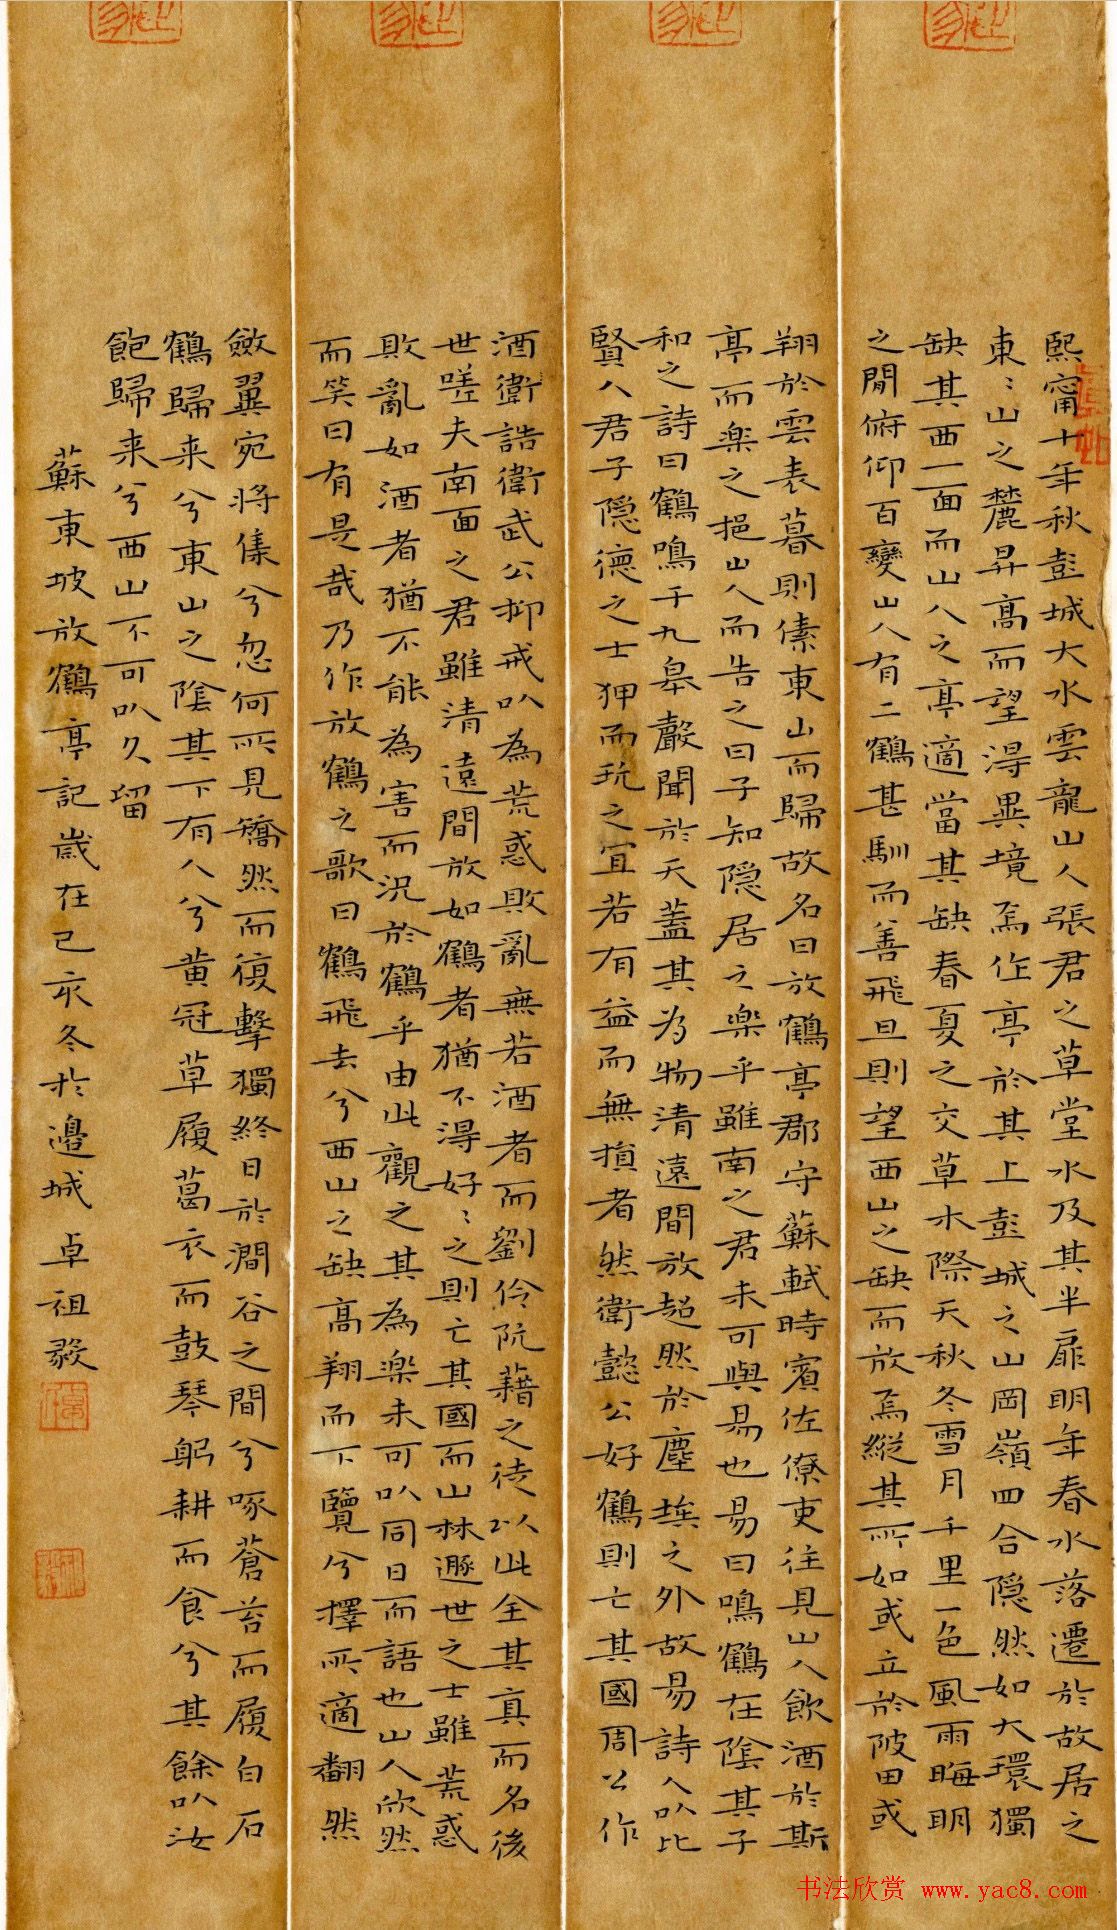 熙甯十年秋彭城大水雲龍山人張君之草堂水及其半扉明年春水落遷於故居之
東〻山之麓昇高而望得異境焉作亭於其上彭城之山岡嶺四合隱然如大環獨
缺其西一面而山人之亭適當其缺春夏之交草木際天秋冬雪月千里一色風雨晦明
之間俯仰百變山人有二鶴甚馴而善飛旦則望西山之缺而放焉縱其所如或立於陂田或
翔於雲表暮則傃東山而歸故名曰放鶴亭郡守蘇軾時賓佐僚吏往見山人飲酒於斯
亭而樂之挹山人而告之曰子知隱居之樂乎雖南之君未可與易也易曰鳴鶴在陰其子
和之詩曰鶴鳴于九皋聲聞於天蓋其為物清遠閒放超然於塵埃之外故易詩人㕥比
賢人君子隱德之士狎而玩之宜若有益而無損者然衛懿公好鶴則亡其國周公作
酒衛誥衛武公抑戒㕥為荒惑敗亂無若酒者而劉伶阮藉之徒以此全其真而名後
世嗟夫南面之君雖清遠閒放如鶴者猶不得好〻之則亡其國而山林遯世之士雖荒惑
敗亂如酒者猶不能為害而況於鶴乎由此觀之其為樂未可㕥同日而語也山人欣然
而笑曰有是哉乃作放鶴之歌曰鶴飛去兮西山之缺高翔而下覽兮擇所適翻然
斂翼宛將集兮忽何所見矯然而復擊獨終日於澗谷之間兮啄蒼苔而履白石
鶴歸来兮東山之陰其下有人兮黄冠草履葛衣而鼓琴躬耕而食兮其餘㕥汝
飽歸来兮西山不可㕥久留
蘇東坡放鶴亭記歲在己亥冬於邊城卓祖毅
书法欣赏 www.yac8.com